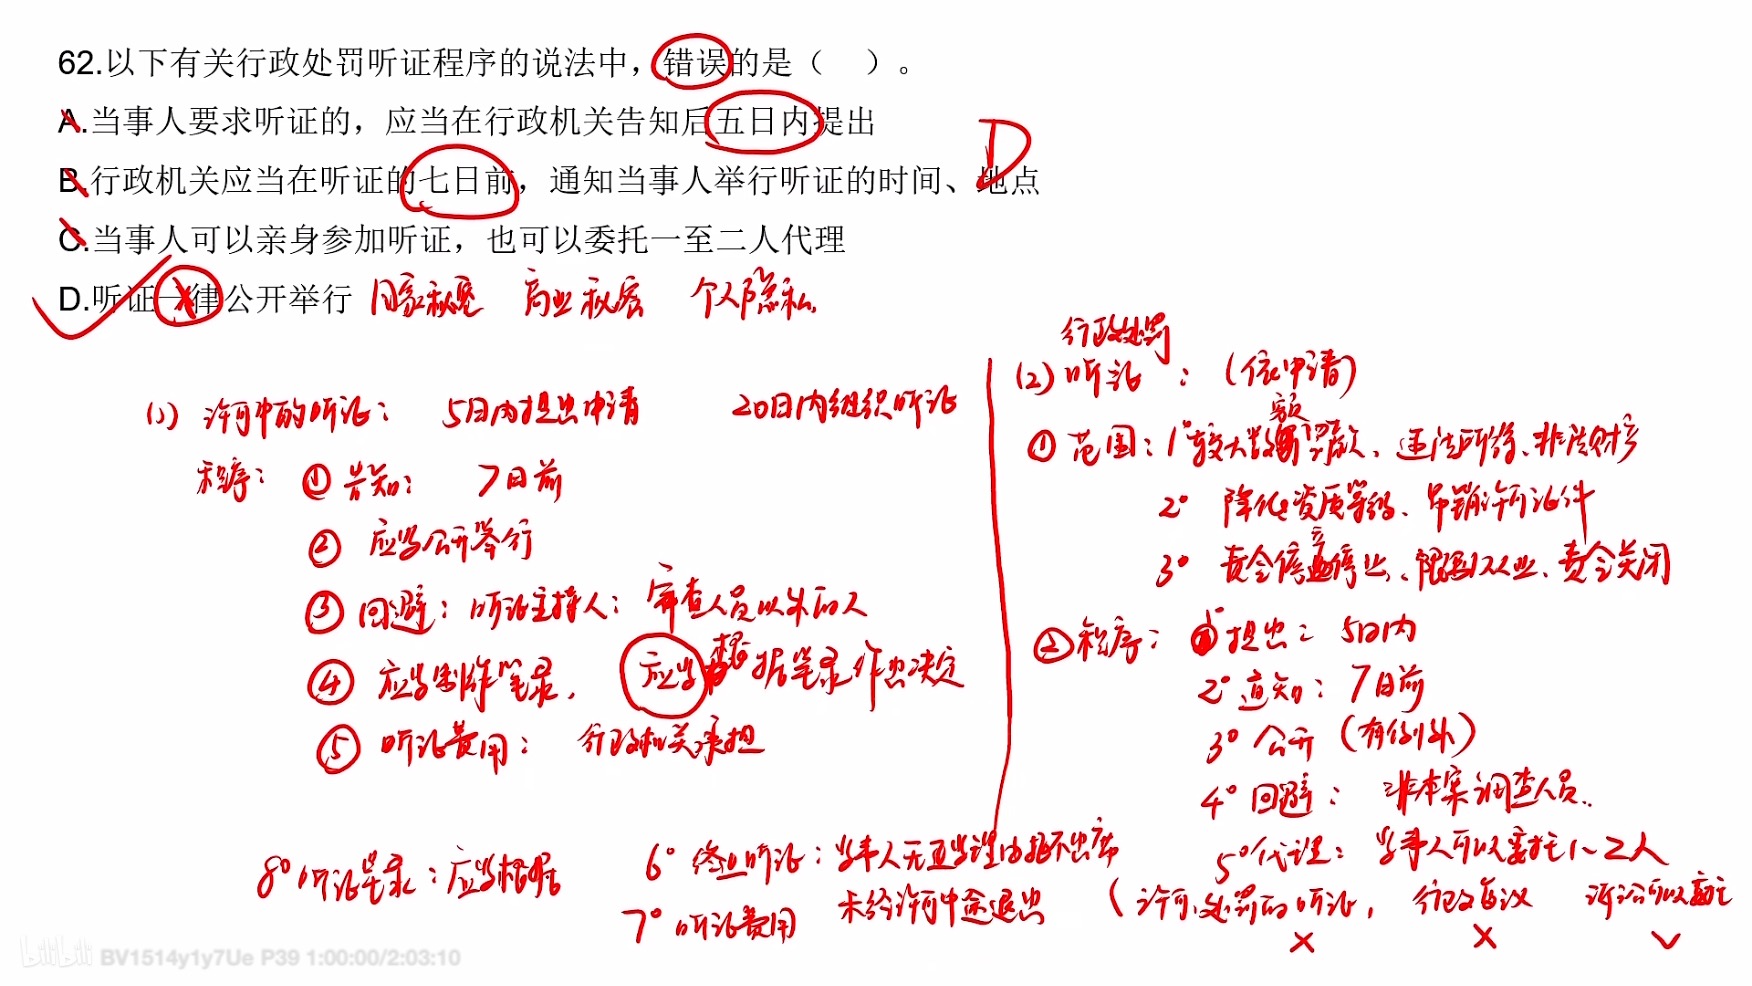 62.以下有关行政处罚听证程序的说法中，错误的是（ ）。
A.当事人要求听证的，应当在行政机关告知后五日内提出
B.行政机关应当在听证的七日前，通知当事人举行听证的时间、地点
D
C.当事人可以亲身参加听证，也可以委托一至二人代理
D.听证一律公开举行 国家秘密 商业秘密 个人隐私
(1) 许可中的听证： 5日内提出申请 20日内组织听证
程序： ① 告知： 7日前
② 应当公开举行
③ 回避：听证主持人：审查人员以外的人
④ 应当制作笔录， 应当根据笔录作出决定
⑤ 听证费用： 行政机关承担
行政处罚
(2) 听证 ：（依申请）
① 范围：1°较大数额罚款、违法所得、非法财产
2° 降低资质等级、吊销许可证件
3° 责令停产停业、限制从业、责令关闭
② 程序： 1°提出： 5日内
2°通知： 7日前
3° 公开 （有例外）
4° 回避： 非本案调查人员.
5°代理： 当事人可以委托1~2人
（许可、处罚的听证， 行政复议 诉讼可以
× × ✓
6° 终止听证：当事人无正当理由拒不出席
未经许可中途退出
7° 听证费用
8° 听证笔录：应当根据
bilibili BV1514y1y7Ue P39 1:00:00/2:03:10